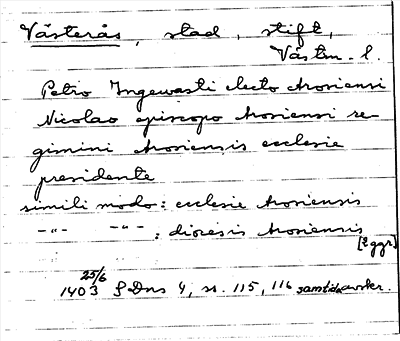 Västerås, stad, stift,
Västm. l.
Petro Ingewasti electo Arosiensi
Nicolao episcopo Arosiensi re-
gimini Arosiensis ecclesie
presidente
simili modo: ecclesie Arosiensis
-"- -"- : diocesis Arosiensis
[2 ggr]
25/6
1403 SDns 4, s. 115, 116 samtida avskr.